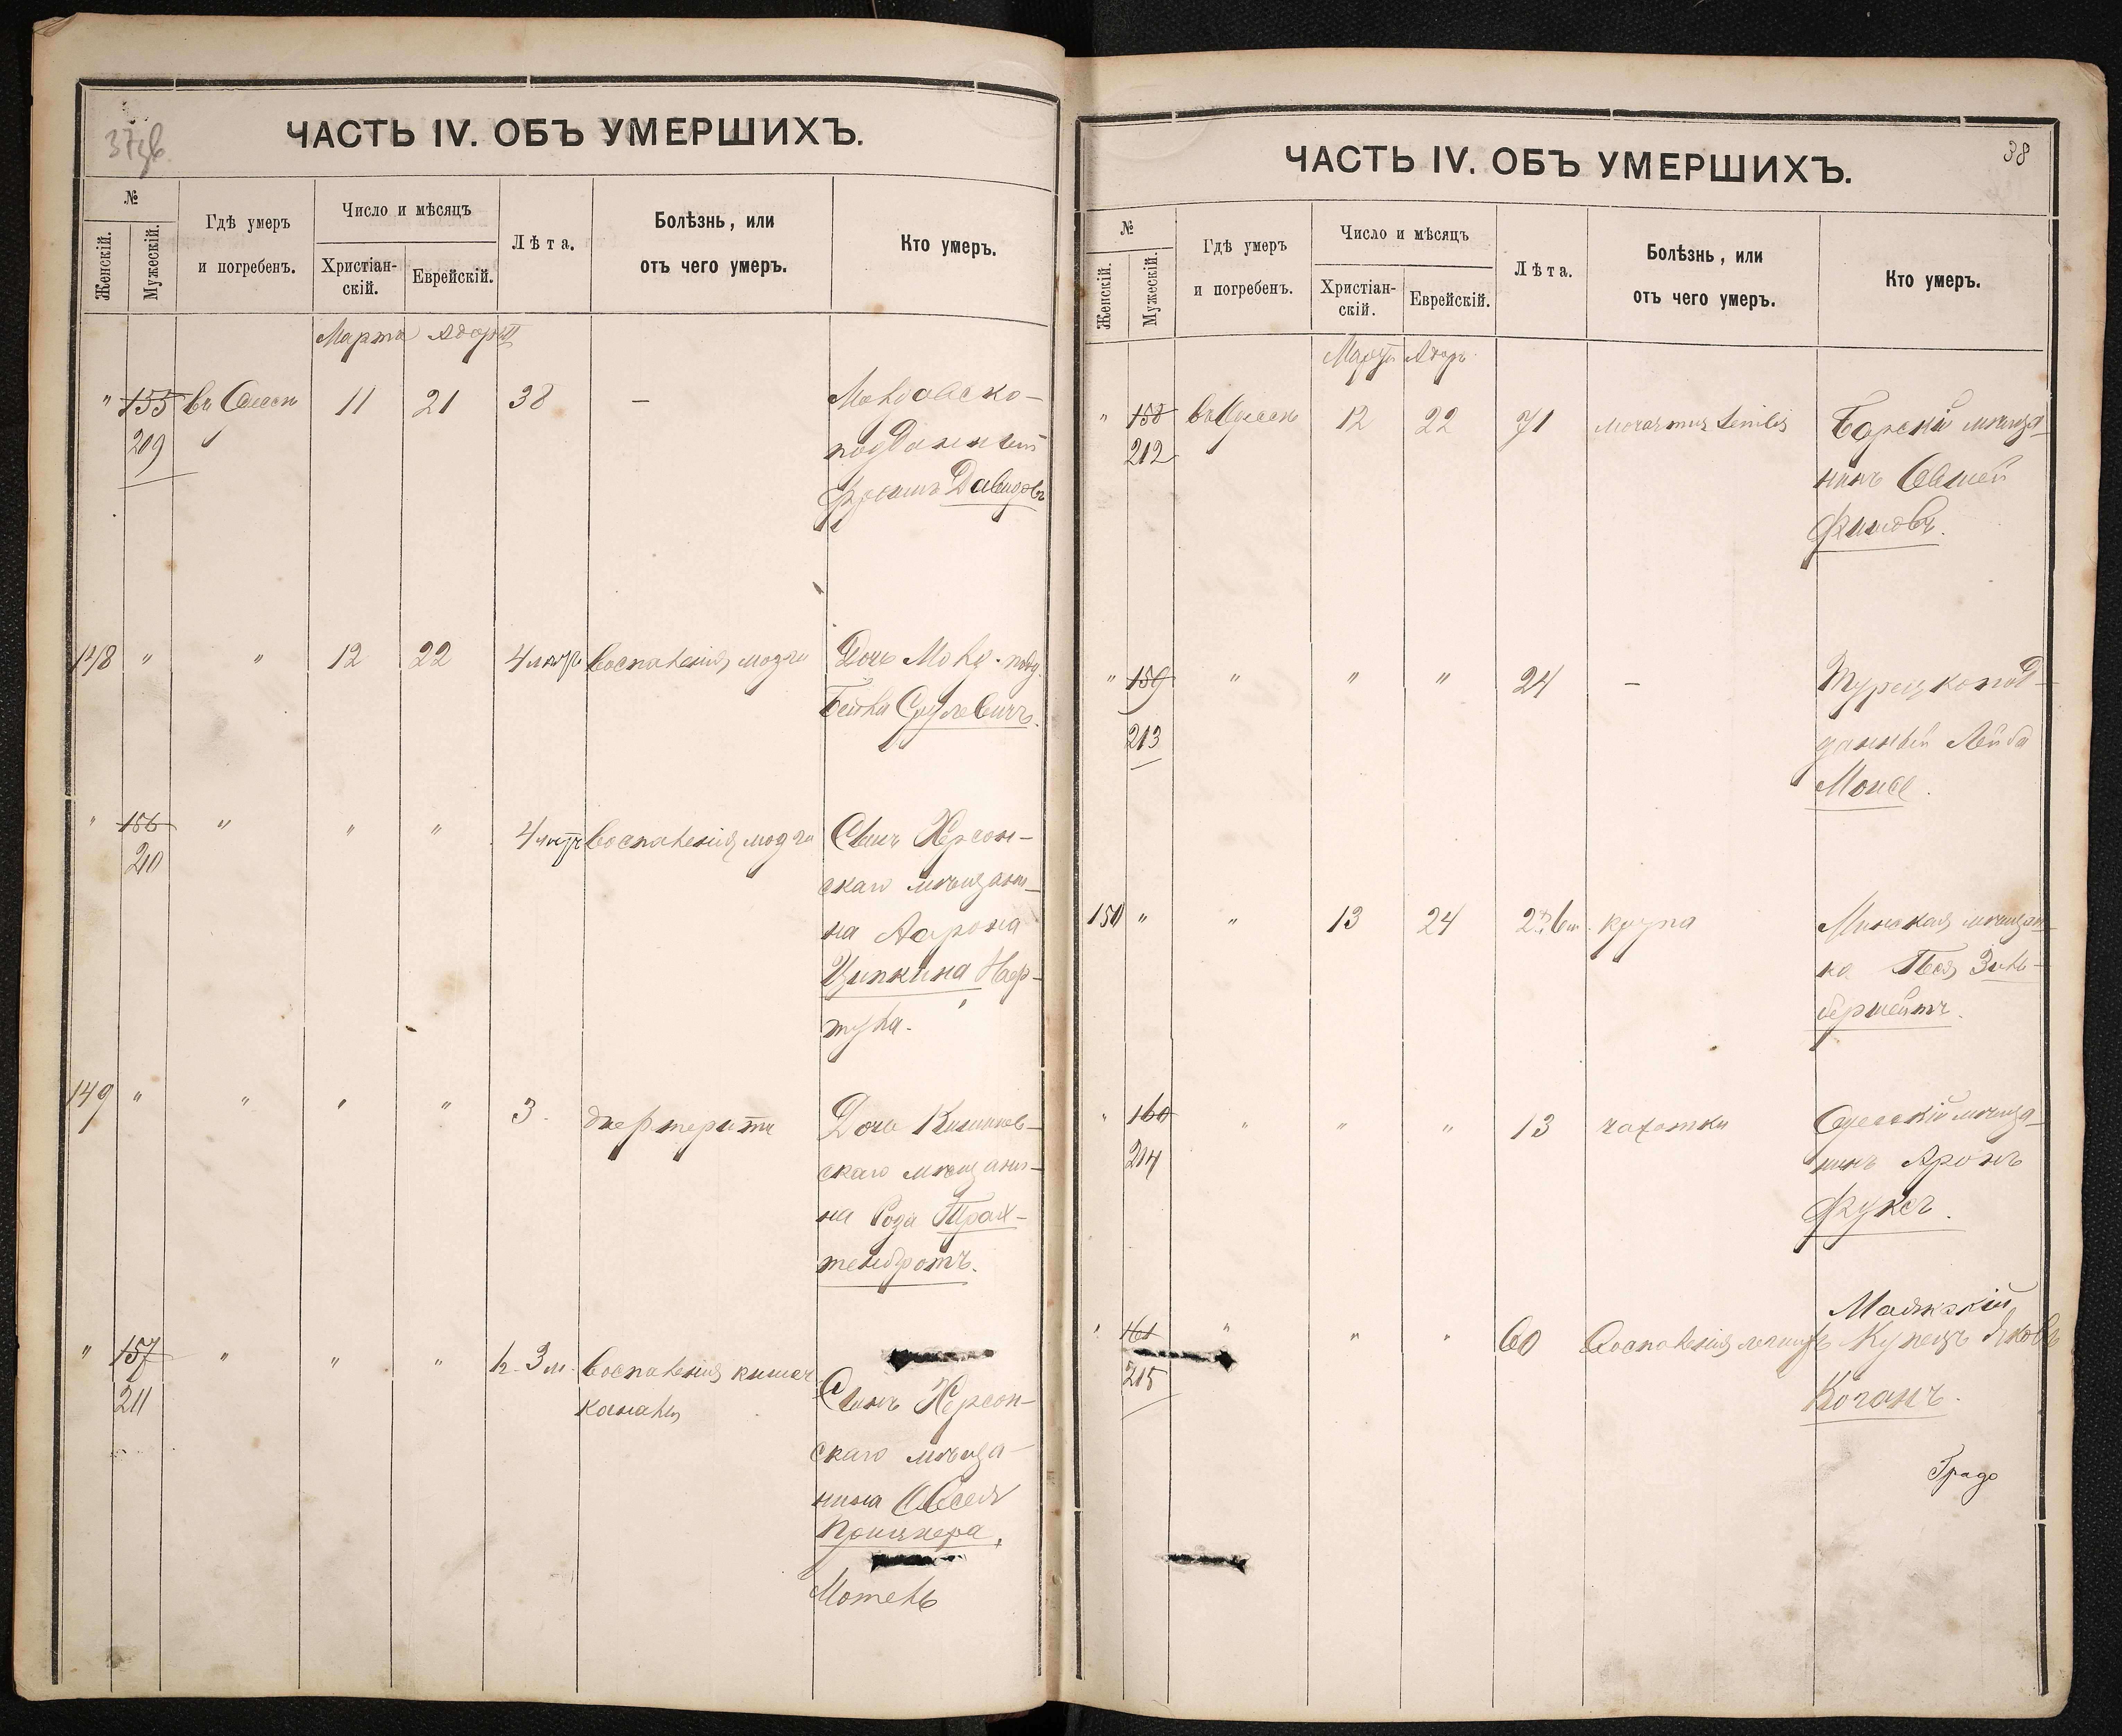 37зв.
ЧАСТЬ IV. ОБЪ УМЕРШИХЪ.
№
Женскій.
Мужескій.
Гдѣ умеръ
и погребенъ.
Число и мѣсяцъ
Христіан-
скій.
Еврейскій.
Лѣта.
Болѣзнь, или
отъ чего умеръ.
Кто умеръ.
Марта Адаръ
" 155 въ Одессѣ 11 21 38 — Молдавско-
209 подданный
Фроимъ Давидовъ
148 " " 12 22 4 лѣтъ Воспаленія мозга Дочь Молд. подд.
Бейла Срулевичъ.
" 156 " " " 4 лѣтъ Воспаленія мозга Сынъ Херсон-
210 скаго мѣщани-
на Аарона
Ципкина Наф-
тула.
149 " " " " 3. дифтеритъ Дочь Кишинев-
скаго мѣщани-
на Роза Трах-
тенбротъ.
" 157 " " " 3 м. Воспаленія кишеч.
211 канала Сынъ Херсон-
скаго мѣща-
нина Овсея
Принцкера.
Мотель
38
ЧАСТЬ IV. ОБЪ УМЕРШИХЪ.
№
Женскій.
Мужескій.
Гдѣ умеръ
и погребенъ.
Число и мѣсяцъ
Христіан-
скій.
Еврейскій.
Лѣта.
Болѣзнь, или
отъ чего умеръ.
Кто умеръ.
Марта Адаръ
" 158 въ Одессѣ 12 22 71 marasmus senilis Барскій мѣща-
212 нинъ Овшей
Фишовъ.
" 159 " " " 24 — Турецкопод-
213 данный Лейба
Моисе.
150 " " 13 24 крупа Минская мѣщан-
ка Песя Зиль-
берштейнъ.
" 160 " " " 13 чахотки Одесскій мѣща-
214 нинъ Аронъ
Фуксъ.
Маякскій
" 161 " " " 60 Воспаленія легкихъ Купецъ Яковъ
215 Коганъ.
Градо